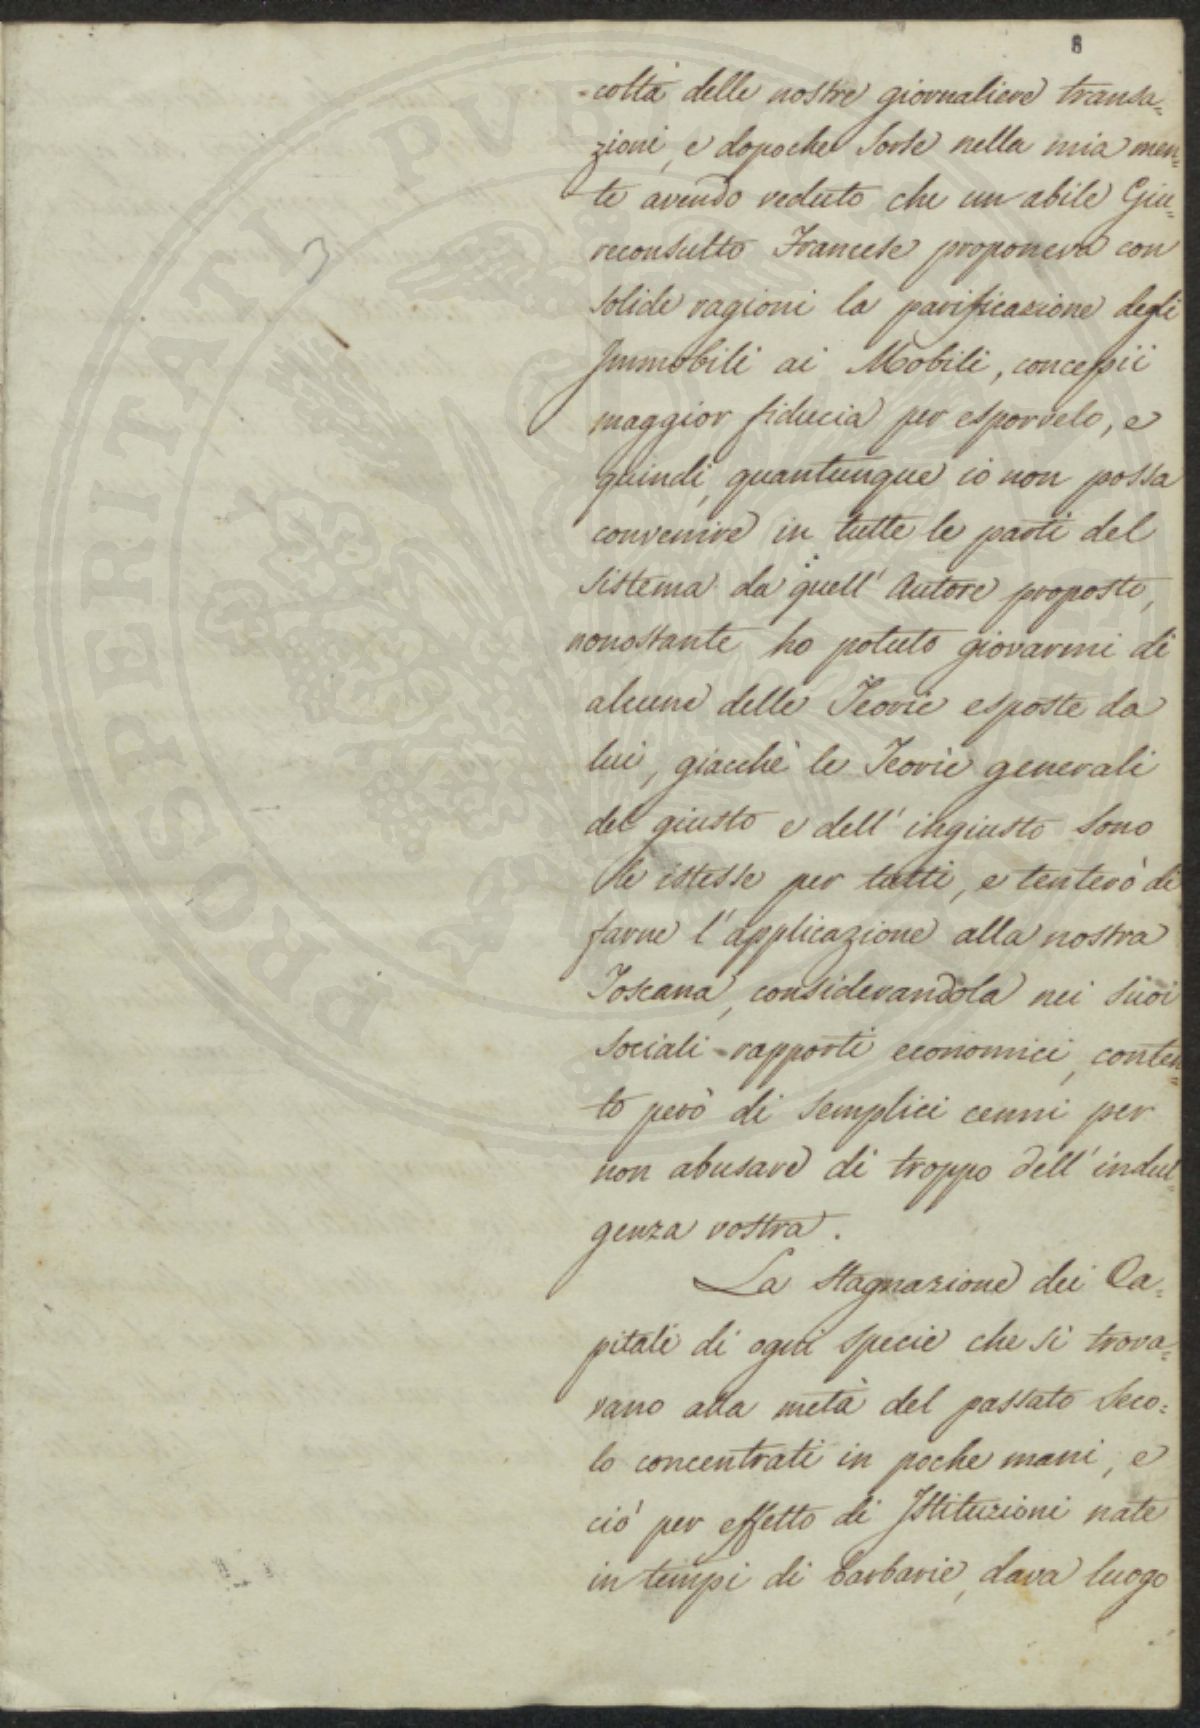 8
=coltà delle nostre giornaliere transa=
zioni, e dopoche sorse nella mia men=
te avendo veduto che un abile Giu=
reconsulto Francese proponeva con
solide ragioni la parificazione degli
Immobili ai Mobili, concepii
maggior fiducia per esporvelo, e
quindi, quantunque io non possa
convenire in tutte le parti del
sistema da quell' Autore proposto,
nonostante ho potuto giovarmi di
alcune delle Teorie esposte da
lui, giacchè le Teorie generali
del giusto e dell' ingiusto sono
le istesse per tutti, e tenterò di
farne l' applicazione alla nostra
Toscana, considerandola nei suoi
sociali rapporti economici, conten=
to però di semplici cenni per
non abusare di troppo dell' indul=
genza vostra.
La stagnazione dei Ca=
pitali di ogni specie che si trova=
vano alla metà del passato Seco=
lo concentrati in poche mani, e
ciò per effetto di Istituzioni nate
in tempi di barbarie, dava luogo
PROSPERITATI PVBLICAE